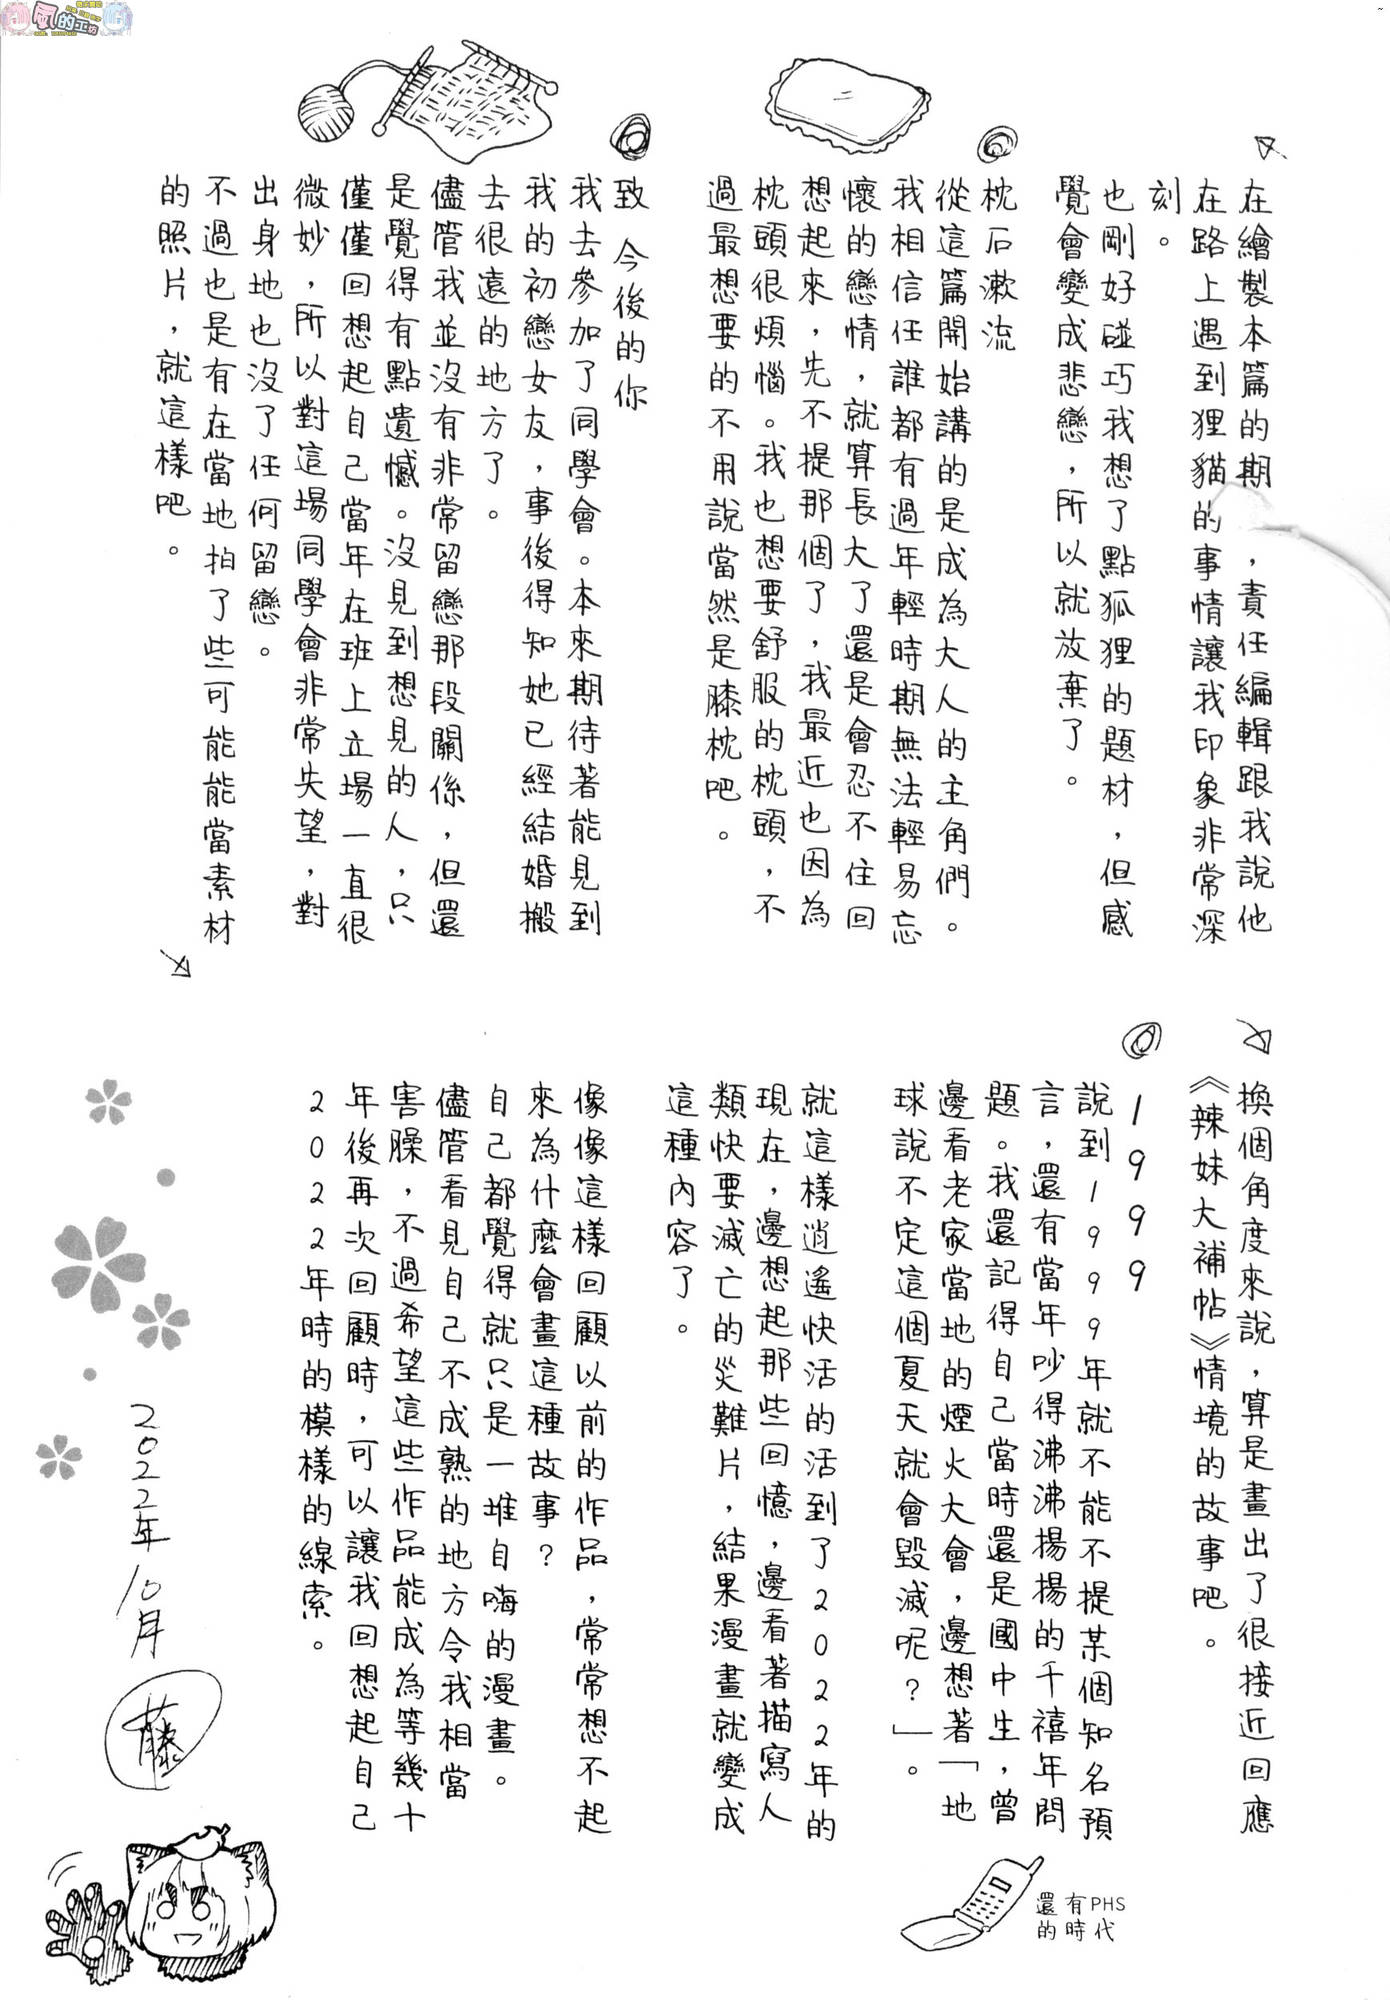 在繪製本篇的期，責任編輯跟我說他
在路上遇到狸貓的事情讓我印象非常深
刻。
也剛好碰巧我想了點狐狸的題材，但感
覺會變成悲戀，所以就放棄了。
枕石漱流
從這篇開始講的是成為大人的主角們。
我相信任誰都有過年輕時期無法輕易忘
懷的戀情，就算長大了還是會忍不住回
想起來，先不提那個了，我最近也因為
枕頭很煩惱。我也想要舒服的枕頭，不
過最想要的不用說當然是膝枕吧。
致 今後的你
我去參加了同學會。本來期待著能見到
我的初戀女友，事後得知她已經結婚搬
去很遠的地方了。
儘管我並沒有非常留戀那段關係，但還
是覺得有點遺憾。沒見到想見的人，只
僅僅回想起自己當年在班上立場一直很
微妙，所以對這場同學會非常失望，對
出身地也沒了任何留戀。
不過也是有在當地拍了些可能能當素材
的照片，就這樣吧。
換個角度來說，算是畫出了很接近回應
《辣妹大補帖》情境的故事吧。
1999
說到1999年就不能不提某個知名預
言，還有當年吵得沸沸揚揚的千禧年問
題。我還記得自己當時還是國中生，曾
邊看老家當地的煙火大會，邊想著「地
球說不定這個夏天就會毀滅呢？」。
就這樣逍遙快活的活到了2022年的
現在，邊想起那些回憶，邊看著描寫人
類快要滅亡的災難片，結果漫畫就變成
這種內容了。
像像這樣回顧以前的作品，常常想不起
來為什麼會畫這種故事？
自己都覺得就只是一堆自嗨的漫畫。
儘管看見自己不成熟的地方令我相當
害臊，不過希望這些作品能成為等幾十
年後再次回顧時，可以讓我回想起自己
2022年時的模樣的線索。
還有PHS
的時代
2022年10月
藤
風的工坊